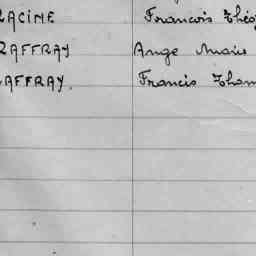 RACINE Francois Théo
RAFFRAY Ange Marie
RAFFRAY. Francis Thom